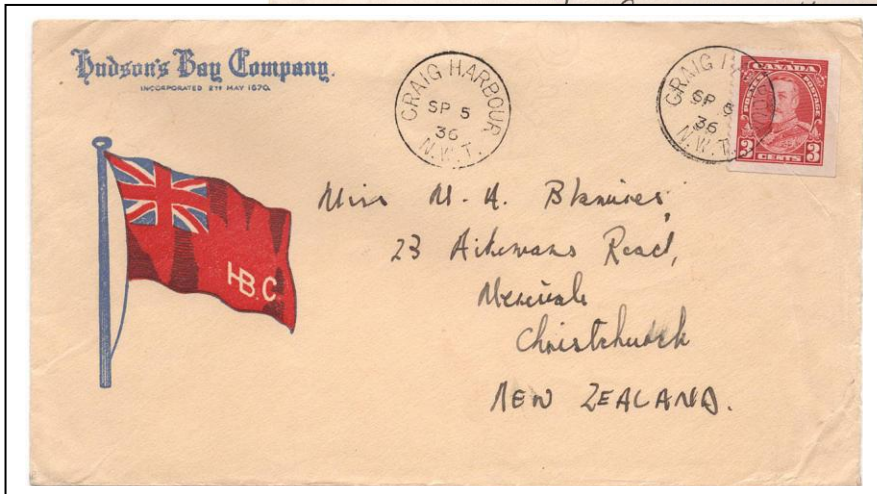 Hudson's Bay Company.
INCORPORATED 2ND MAY 1670.
CRAIG HARBOUR
SP 5
36
N.W.T.
CRAIG
SP 5
36
N.W.T.
CANADA
POSTES POSTAGE
3 CENTS 3
H.B.C.
Miss M. A.
23 Aikmans Road,
Merivale
Christchurch
NEW ZEALAND.